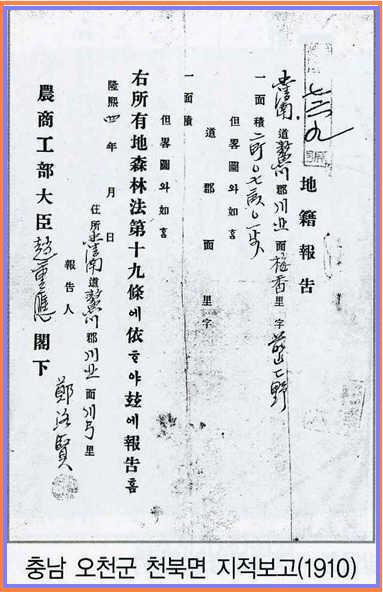 七三九
地籍報告
忠淸南道鰲川郡川北面梅香里字
一面積
但畧圖와如홈
道郡面里字
一面積
但畧圖와如홈
右所有地森林法第十九條에依ᄒᆞ야玆에報告홈
隆熙四年月日
住所忠淸南道鰲川郡川北面里
報告人鄭洛賢
農商工部大臣趙重應閣下
충남 오천군 천북면 지적보고(1910)